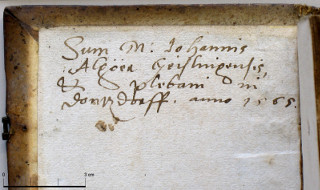 Sum M: Johannis
Algöer Geislingensis,
& Plebani in
Dontzdorff. anno 1565
0 3cm